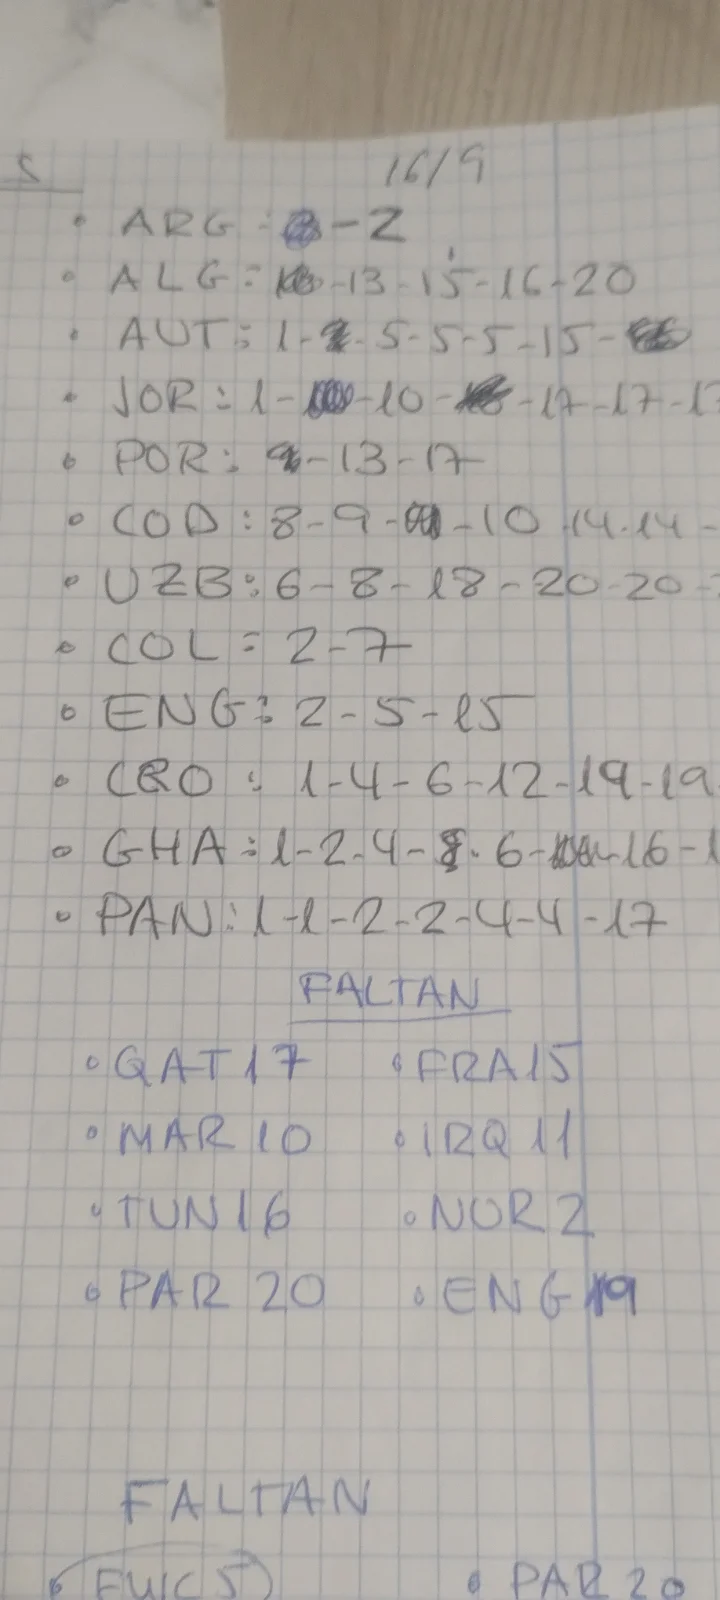 S 16/9
• ARG: -2
• ALG: -13-15-16-20
• AUT: 1- -5-5-5-15-
• JOR: 1- -10- -17-17-17
• POR: -13-17
• COD: 8-9- -10 14.14-
• UZB: 6-8-18-20-20-
• COL: 2-7
• ENG: 2-5-15
• CRO: 1-4-6-12-19-19
• GHA: 1-2-4- -6- -16-1
• PAN: 1-1-2-2-4-4-17
FALTAN
• QAT 17 • FRA 15
• MAR 10 • IRQ 11
• TUN 16 • NOR 2
• PAR 20 • ENG 19
FALTAN
• FWC 5) • PAR 20